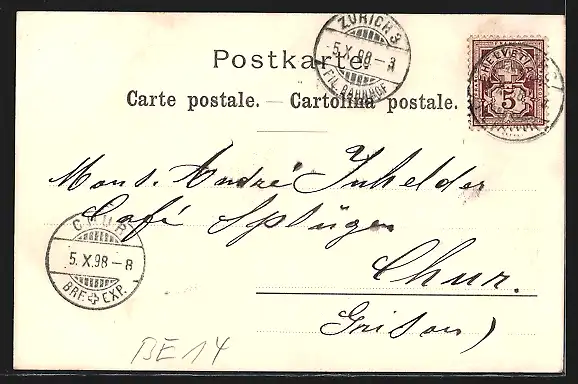 ZÜRICH 3
5.X.98-8
FIL. BAHNHOF
HELVETIA
5
Postkarte.
Carte postale. — Cartolina postale.
Mons. André Inhelder
Café Splügen
Chur.
Grison)
CHUR
5.X.98-8
BRF. EXP.
BE 14